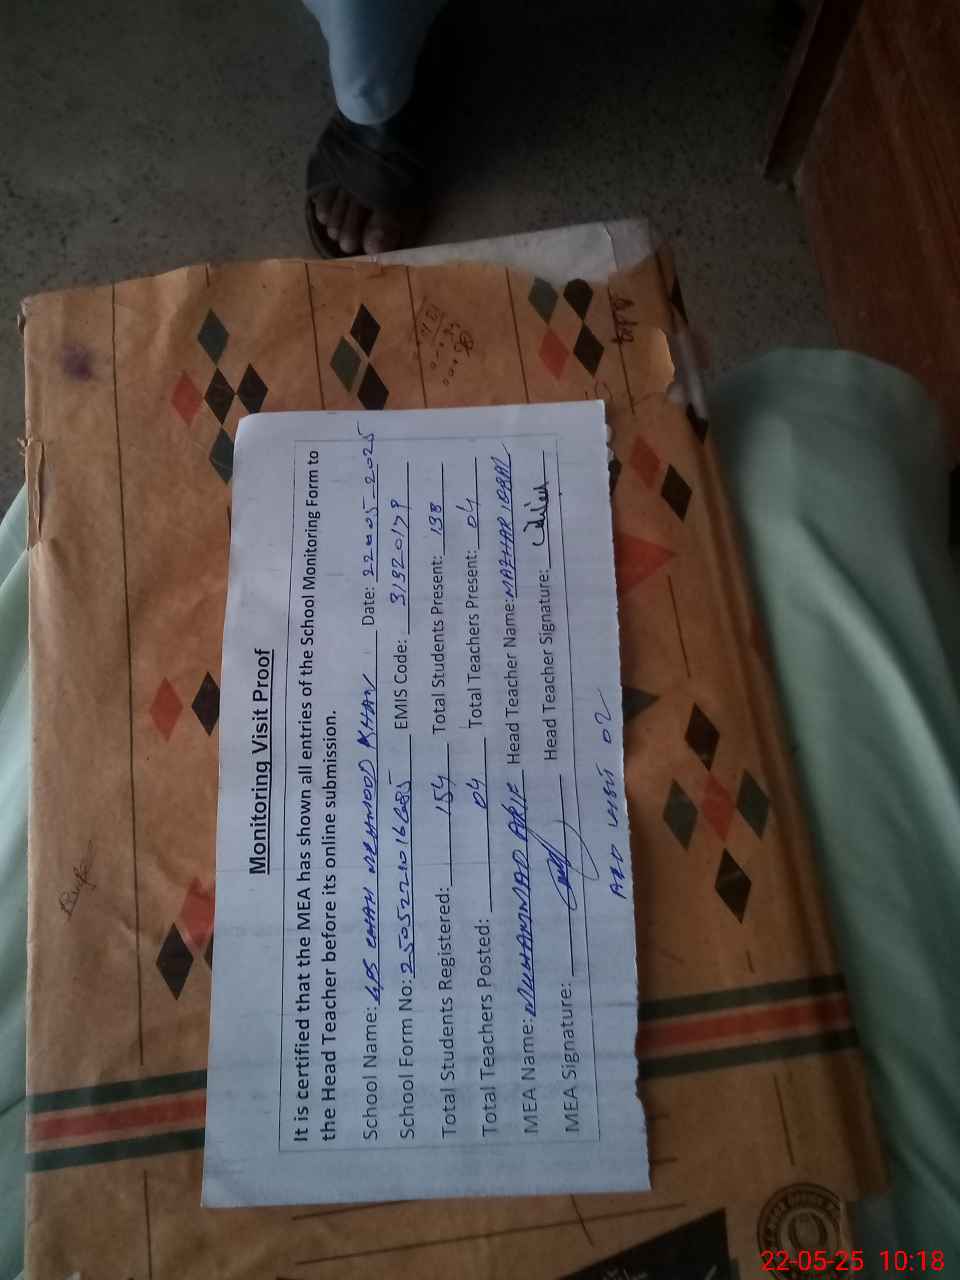 Monitoring Visit Proof
It is certified that the MEA has shown all entries of the School Monitoring Form to
the Head Teacher before its online submission.
School Name: GPS CHAH MEHMOOD KHAN Date: 22-05-2025
School Form No: EMIS Code: 31320179
Total Students Registered: 154 Total Students Present: 138
Total Teachers Posted: 04 Total Teachers Present: 04
MEA Name: MUHAMMAD ARIF Head Teacher Name: MAZHAR IQBAL
MEA Signature: Head Teacher Signature:
VISIT 02
22-05-25 10:18